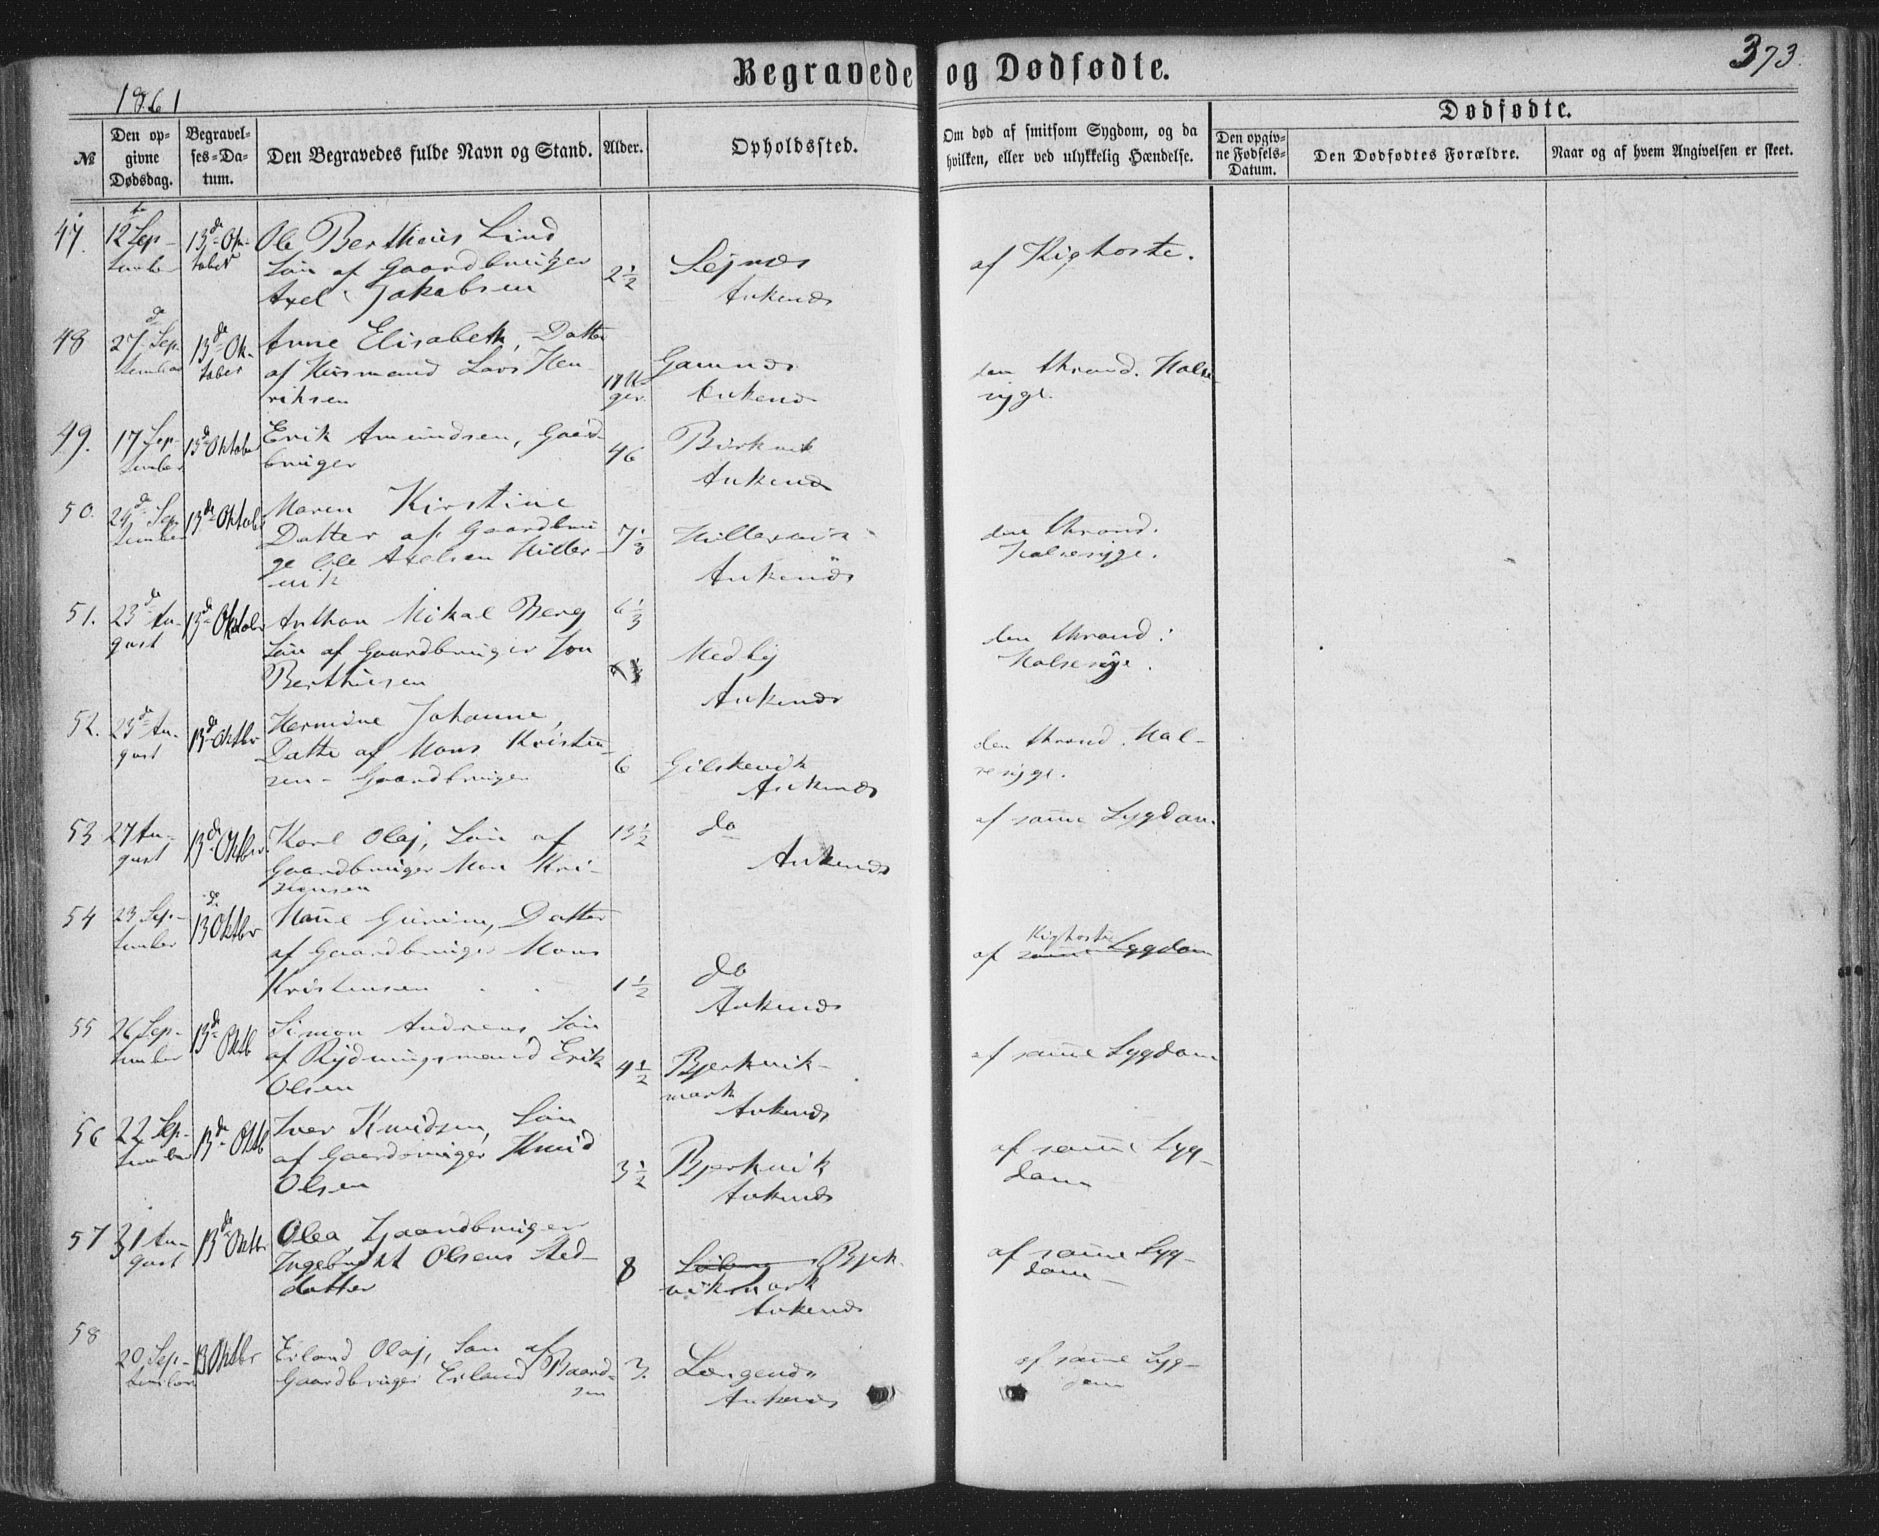 373.
Begravede og Dødfødte.
1861
Dødfødte.
№
Den op-
givne
Dødsdag.
Begravel-
ses-Da-
tum.
Den Begravedes fulde Navn og Stand.
Alder.
Opholdssted.
Om død af smitsom Sygdom, og da
hvilken, eller ved ulykkelig Hændelse.
Den opgiv-
ne Fødsels-
Datum.
Den Dødfødtes Forældre.
Naar og af hvem Angivelsen er skeet.
47.
12 Sep-
tember
13de Ok-
tober
Ole Bertheus Lind
Søn af Gaardbruger
Axel Jakobsen
2 1/2
Sejnæs
Ankenæs
af Kighoste.
48
27de Sep-
tember
13de Ok-
tober
Anne Elisabeth, Datter
af Husmand Lars Hen-
riksen
Ankenæs
den ondartede Halse-
syge.
49.
17 Sep-
tember
13de Oktober
Erik Amundsen, Gaard-
bruger
46
Ankenæs
50.
13de Oktober
Maren Kirstine
Datter af Gaardbru
ge Ole Axelsen
7 1/3
Ankenæs
Halsesyge.
51.
23de Au-
gust
13de Oktober
Anthon Mikal Berg
Søn af Gaardbruger Jon
Bertheusen
6 1/3
Medby
Ankenæs
Halsesyge.
52.
25de Au-
gust
13de Oktbr
Hermine Johanne,
Datter af Mons Kristen-
sen - Gaardbruger
6
Ankenæs
Hal-
sesyge.
53
27 Au-
gust
13de Oktbr.
Karl Olaj, Søn af
Gaardbruger Mons Kri-
stensen
13 1/2
do
Ankenæs
af samme Sygdom.
54
23 Sep-
tember
13de Oktbr
Datter
af Gaardbruger Mons
Kristensen
1 1/2
do
Ankenæs
Kighoste
af samme Sygdom
55
26 Sep-
tember
13de Oktb
Simon Andreas, Søn
af Rydningsmand Erik
Olsen
4 1/2
Bjerkvik-
mark
Ankenæs
af samme Sygdom
56
22 Sep-
tember
13de Oktb
Iver Knudsen, Søn
af Gaardbruger Knud
Olsen
3 1/2
Bjerkvik
Ankenæs
af samme Syg-
dom
57
31 Au-
gust
13de Oktbr
Olea Gaardbruger
Ingebrigt Olsens Sted-
datter
8
Bjerk-
vikmark
Ankenæs
af samme Syg-
dom
58
20 Sep-
tember
13 Oktbr
Erland Olaj, Søn af
Gaardbruger Erland Baard-
sen
3.
Ankenæs
af samme Syg-
dom